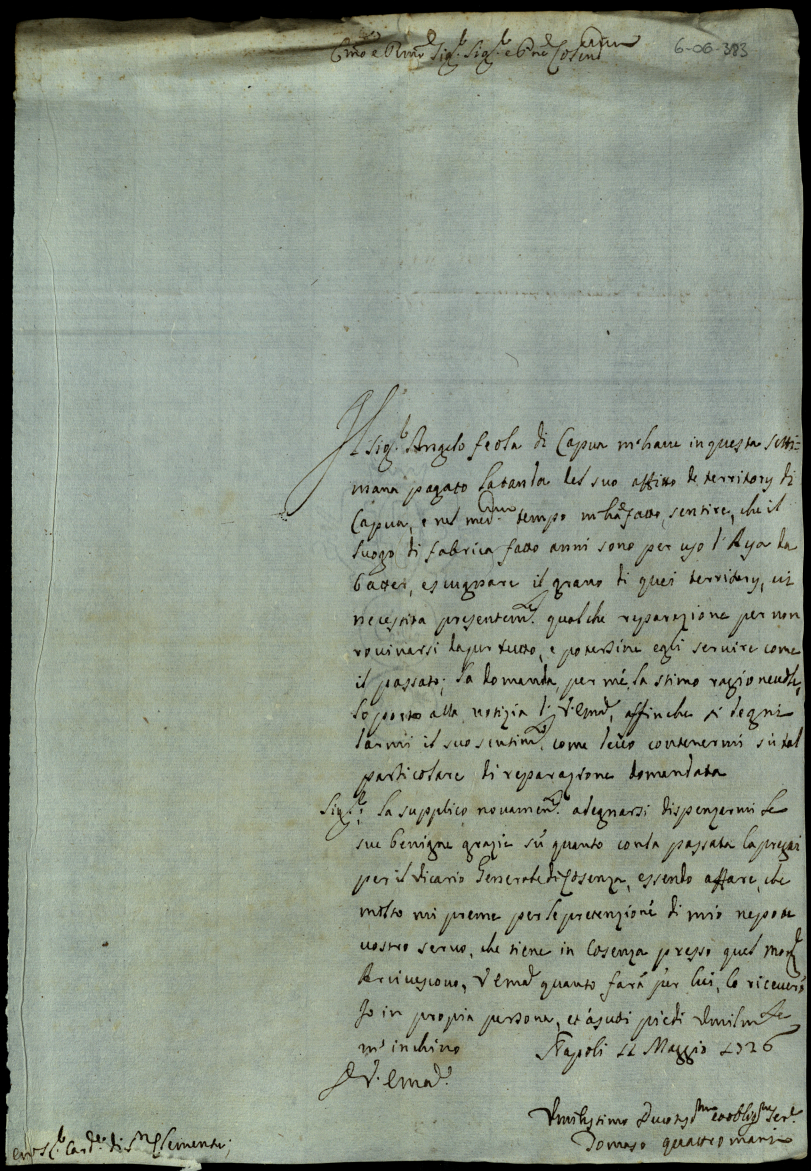 Emo e Rmo Sig.r Sig.r e Pne Colmo
6-06-383
Il Sig.r Angelo Feola di Capua m'have in questa setti=
mana pagato la tanda del suo affitto de territorÿ di
Capua, e nel med.mo tempo m'ha fatto sentire, che il
luogo di fabrica fatto anni sono per uso d'Aya da
batter, e scugnare il grano di quei territorÿ, vi
necessita presentem.te qualche reparazione per non
rovinarsi da pur tutto, e potersine egli servire come
il passato; la domanda, per mé, la stimo ragionevole,
lo porto alla notizia di V. Em.a, affinche si degni
darmi il suo sentim.to come devo contenermi sù tal
particolare di reparazione domandata
Sig.re, la supplico novamen.te a degnarsi dispenzarmi le
sue benigne grazie sù quanto con la passata la pregai
per il Vicario Generale di Cosenza, essendo affare, che
molto mi preme per le pretenzioni di mio nepote
vostro servo, che tiene in Cosenza presso quel Mon.r
Arcivescovo, V. Em.a quanto farà per lui, lo riceverò
Io in propia persona, et a suoi piedi umilm.te
m'inchino Napoli 11 Maggio 1726
D V. Em.a
Umilissimo Devotis.mo et oblig.mo Ser.e
Tomaso quattromani
Em.o S.r Card.le di S. Clemente;